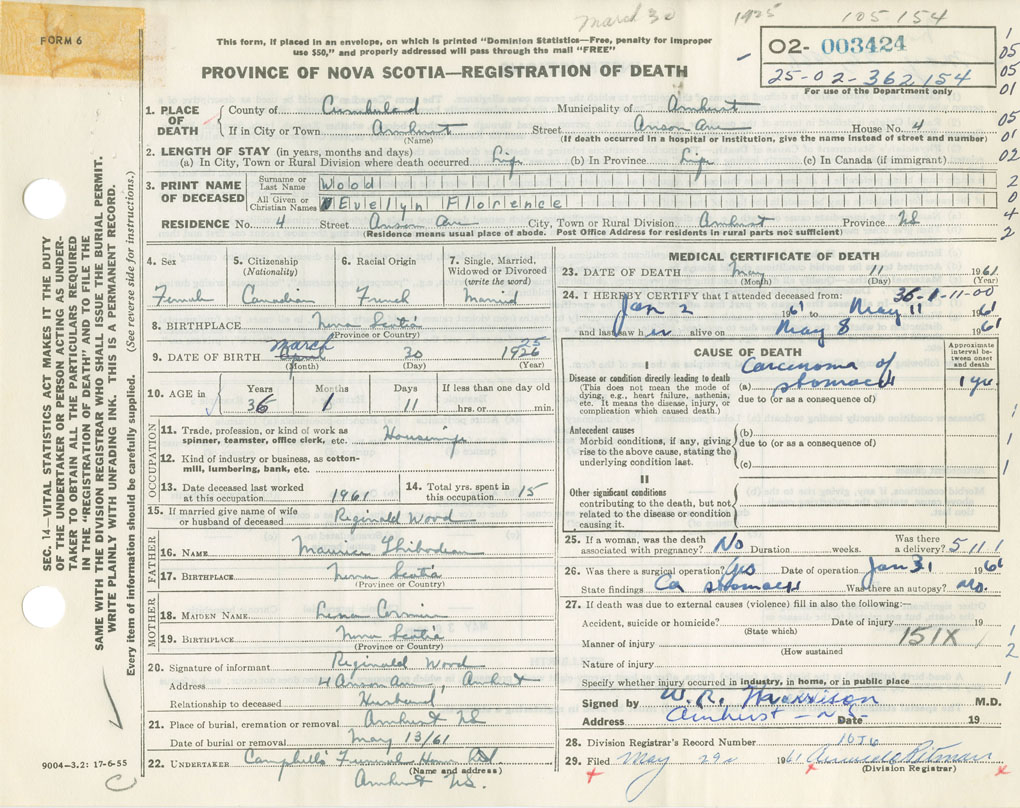 March 30 1925 105154
FORM 6
This form, if placed in an envelope, on which is printed "Dominion Statistics—Free, penalty for improper
use $50," and properly addressed will pass through the mail "FREE"
PROVINCE OF NOVA SCOTIA—REGISTRATION OF DEATH
02- 003424
25-02-362154
For use of the Department only
1. PLACE OF DEATH
County of Cumberland Municipality of Amherst
If in City or Town Amherst Street Anson Ave House No. 4
(Name) (If death occurred in a hospital or institution, give the name instead of street and number)
2. LENGTH OF STAY (in years, months and days)
(a) In City, Town or Rural Division where death occurred Life (b) In Province Life (c) In Canada (if immigrant)
3. PRINT NAME OF DECEASED
Surname or Last Name Wood
All Given or Christian Names Evelyn Florence
RESIDENCE No. 4 Street Anson Ave City, Town or Rural Division Amherst Province NS
(Residence means usual place of abode. Post Office Address for residents in rural parts not sufficient)
4. Sex Female
5. Citizenship (Nationality) Canadian
6. Racial Origin French
7. Single, Married, Widowed or Divorced (write the word) Married
8. BIRTHPLACE Nova Scotia
(Province or Country)
9. DATE OF BIRTH April March 30 1926 25
(Month) (Day) (Year)
10. AGE in Years 36 Months 1 Days 11 If less than one day old hrs. or min.
OCCUPATION
11. Trade, profession, or kind of work as spinner, teamster, office clerk, etc. Housewife
12. Kind of industry or business, as cotton-mill, lumbering, bank, etc.
13. Date deceased last worked at this occupation 1961
14. Total yrs. spent in this occupation 15
15. If married give name of wife or husband of deceased Reginald Wood
FATHER
16. NAME Maurice Thibodeau
17. BIRTHPLACE Nova Scotia
(Province or Country)
MOTHER
18. MAIDEN NAME Lena Cormier
19. BIRTHPLACE Nova Scotia
(Province or Country)
20. Signature of informant Reginald Wood
Address 4 Anson Ave, Amherst
Relationship to deceased Husband
21. Place of burial, cremation or removal Amherst NS
Date of burial or removal May 13/61
22. UNDERTAKER Campbell's Funeral Home Ltd
(Name and address)
Amherst NS.
MEDICAL CERTIFICATE OF DEATH
23. DATE OF DEATH May 11 1961
(Month) (Day)
36-1-11-00
24. I HEREBY CERTIFY that I attended deceased from:
Jan 2 1961 to May 11 1961
and last saw her alive on May 8 1961
CAUSE OF DEATH
Approximate interval between onset and death
I
Disease or condition directly leading to death
(This does not mean the mode of dying, e.g., heart failure, asthenia, etc. It means the disease, injury, or complication which caused death.)
(a) Carcinoma of stomach 1 yr.
due to (or as a consequence of)
Antecedent causes
Morbid conditions, if any, giving rise to the above cause, stating the underlying condition last.
(b)
due to (or as a consequence of)
(c)
II
Other significant conditions
contributing to the death, but not related to the disease or condition causing it.
25. If a woman, was the death associated with pregnancy? No Duration weeks. Was there a delivery? 5 111
26. Was there a surgical operation? Yes Date of operation Jan 31 1961
State findings Ca stomach Was there an autopsy? No.
27. If death was due to external causes (violence) fill in also the following:—
Accident, suicide or homicide? Date of injury 19
(State which)
Manner of injury 151X
(How sustained
Nature of injury
Specify whether injury occurred in industry, in home, or in public place
Signed by W. R. Morrison M.D.
Address Amherst - N.S. Date 19
28. Division Registrar's Record Number
29. Filed May 29 1961
(Division Registrar)
SEC. 14—VITAL STATISTICS ACT MAKES IT THE DUTY
OF THE UNDERTAKER OR PERSON ACTING AS UNDER-
TAKER TO OBTAIN ALL THE PARTICULARS REQUIRED
IN THE "REGISTRATION OF DEATH" AND TO FILE THE
SAME WITH THE DIVISION REGISTRAR WHO SHALL ISSUE THE BURIAL PERMIT.
WRITE PLAINLY WITH UNFADING INK. THIS IS A PERMANENT RECORD.
Every item of information should be carefully supplied. (See reverse side for instructions.)
9004-3.2: 17-6-55
C
1
05
05
01
05
01
02
2
0
4
2
1
1
1
1
2
1